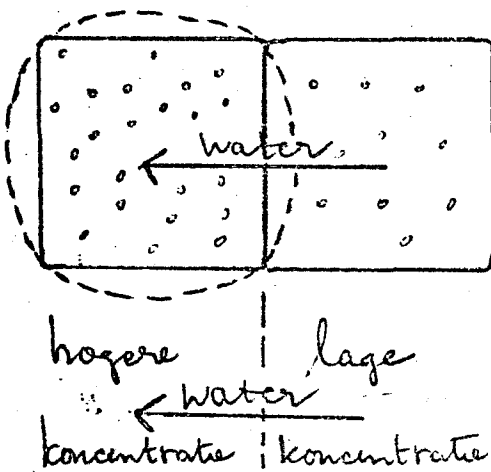 water
hogere lage
water
koncentratie koncentratie